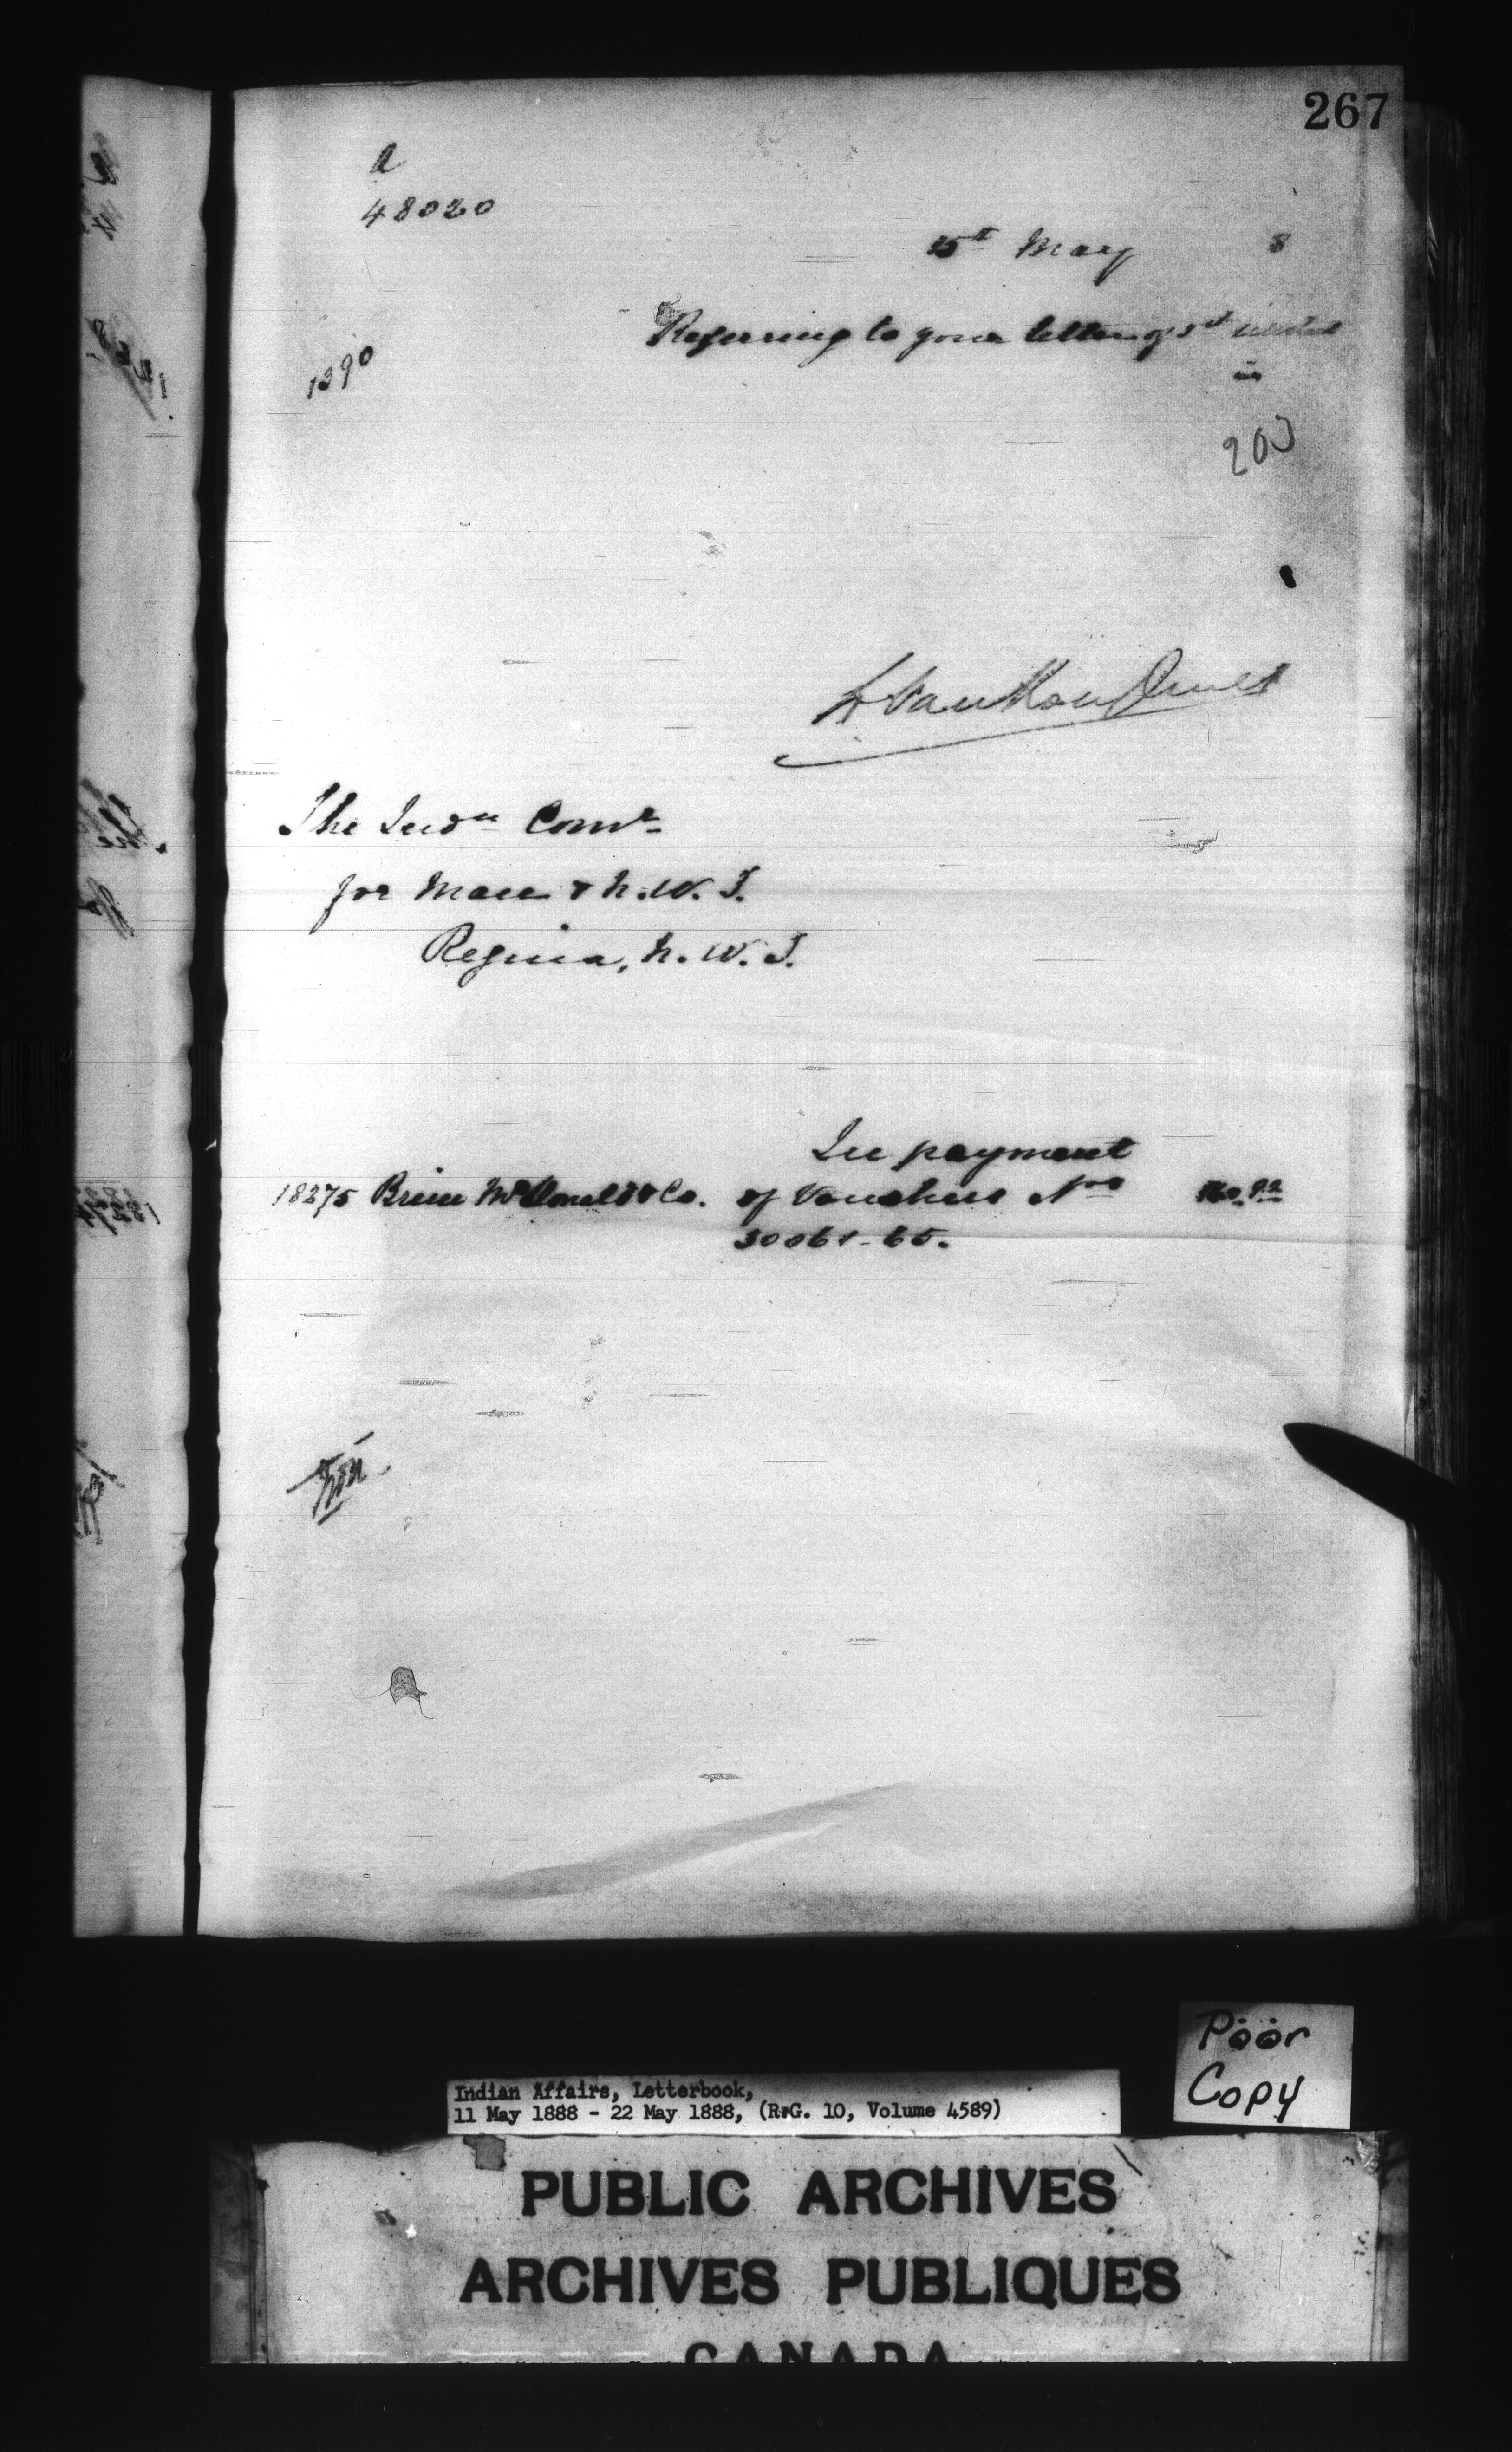 267
a
48020
15th May 8
Referring to your letter of
1390
200
L Van Koughnet
The Indn Comr
for Man & N.W.T.
Regina, N.W.T.
In payment
18275 Brine McDonald & Co. of Vouchers Nos
30061-65.
Poor
Copy
Indian Affairs, Letterbook,
11 May 1888 - 22 May 1888, (R.G. 10, Volume 4589)
PUBLIC ARCHIVES
ARCHIVES PUBLIQUES
CANADA